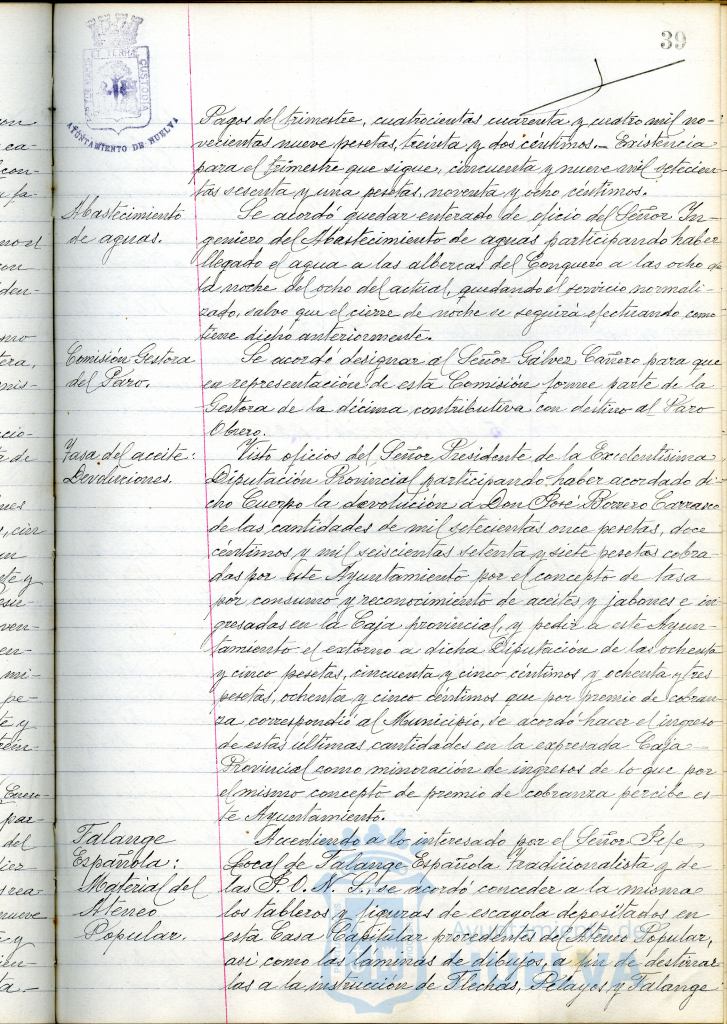 39
AYUNTAMIENTO DE HUELVA
Pagos del trimestre, cuatrocientas cuarenta y cuatro mil no-
vecientas nueve pesetas, treinta y dos céntimos.- Existencia
para el trimestre que sigue, cincuenta y nueve mil setecien-
tas sesenta y una pesetas, noventa y ocho céntimos.
Abastecimiento
de aguas.
Se acordó quedar enterado de oficio del Señor In-
geniero del Abastecimiento de aguas participando haber
llegado el agua a las albercas del Conquero a las ocho de
la noche del ocho del actual, quedando el servicio normali-
zado, salvo que el cierre de noche se seguirá efectuando como
tiene dicho anteriormente.
Comisión Gestora
del Paro.
Se acordó designar al Señor Gálvez Cañero para que
en representación de esta Comisión forme parte de la
Gestora de la décima contributiva con destino al Paro
Obrero.
Tasa del aceite:
Devoluciones.
Visto oficios del Señor Presidente de la Excelentísima
Diputación Provincial participando haber acordado di-
cho Cuerpo la devolución a Don José Borrero Carrasco
de las cantidades de mil setecientas once pesetas, doce
céntimos y mil seiscientas setenta y siete pesetas cobra-
das por este Ayuntamiento por el concepto de tasa
por consumo y reconocimiento de aceites y jabones e in-
gresadas en la Caja provincial, y pedir a este Ayun-
tamiento el extorno a dicha Diputación de las ochenta
y cinco pesetas, cincuenta y cinco céntimos y ochenta y tres
pesetas, ochenta y cinco céntimos que por premio de cobran-
za correspondió al Municipio, se acordó hacer el ingreso
de estas últimas cantidades en la expresada Caja
Provincial como minoración de ingresos de lo que por
el mismo concepto de premio de cobranza percibe es-
te Ayuntamiento.
Falange
Española:
Material del
Ateneo
Popular.
Accediendo a lo interesado por el Señor Jefe
Local de Falange Española Tradicionalista y de
las J. O. N. S., se acordó conceder a la misma
los tableros y figuras de escayola depositados en
esta Casa Capitular procedentes del Ateneo Popular,
así como las láminas de dibujos, a fin de destinar-
las a la instrucción de Flechas, Pelayos y Falange
Ayuntamiento de
HUELVA